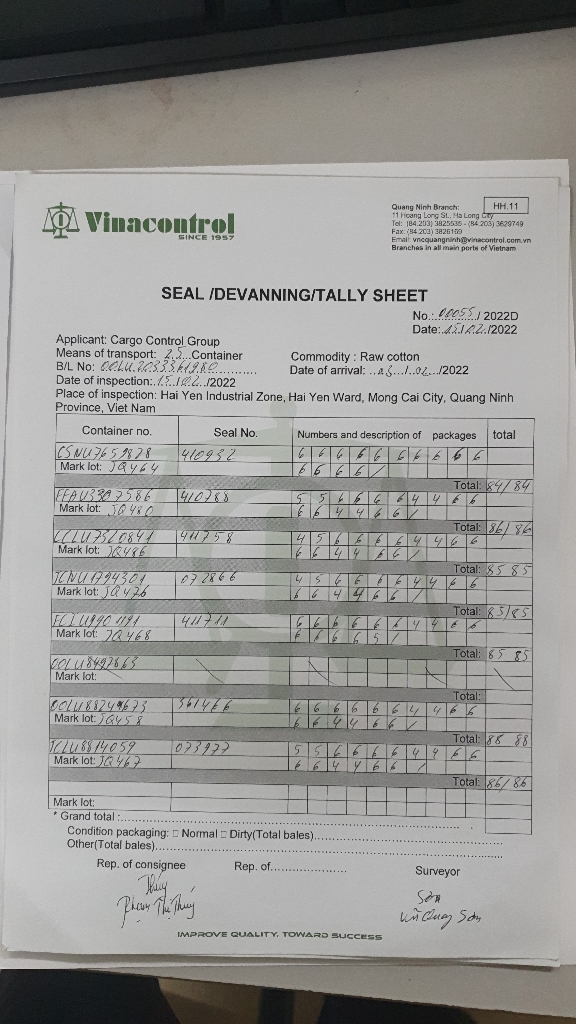 Vinacontrol
SINCE 1957
Quang Ninh Branch:
HH.11
11 Hoang Long St., Ha Long City
Tel: (84.203) 3825535 - (84.203) 3629749
Fax: (84.203) 3826169
Email: vncquangninh@vinacontrol.com.vn
Branches in all main ports of Vietnam
SEAL /DEVANNING/TALLY SHEET
No.: 00055 / 2022D
Date: 15/02/2022
Applicant: Cargo Control Group
Means of transport: 25 Container
Commodity : Raw cotton
B/L No: OOLU2033361980
Date of arrival: 03/02/2022
Date of inspection: 15/02/2022
Place of inspection: Hai Yen Industrial Zone, Hai Yen Ward, Mong Cai City, Quang Ninh
Province, Viet Nam
Container no. Seal No. Numbers and description of packages total
CSNU7659878 410932 6 6 6 6 6 6 6 6 6 6
Mark lot: JQ464 6 6 6 6 /
Total: 84/84
410788 5 5 6 6 6 6 4 4 6 6
Mark lot: JQ480 6 6 4 4 6 6 /
Total: 86/86
411758 4 5 6 6 6 6 4 4 6 6
Mark lot: JQ486 6 6 4 4 6 6 /
Total: 85 85
TCNU1794301 072866 4 5 6 6 6 6 4 4 6 6
Mark lot: JQ476 6 6 4 4 6 6 /
Total: 85/85
411711 6 6 6 6 6 6 4 4 6 6
Mark lot: JQ468 6 6 6 6 5 /
Total: 85 85
OOLU8497863
Mark lot:
Total:
OOLU8824673 361466 6 6 6 6 6 6 4 4 6 6
Mark lot: JQ458 6 6 4 4 6 6 /
Total: 88 88
TCLU8814059 073977 5 5 6 6 6 6 4 4 6 6
Mark lot: JQ467 6 6 4 4 6 6 /
Total: 86/86
Mark lot:
* Grand total :
Condition packaging: □ Normal □ Dirty(Total bales)
Other(Total bales)
Rep. of consignee Rep. of Surveyor
Thúy
Phạm Thị Thúy
Sơn
Vũ Quang Sơn
IMPROVE QUALITY, TOWARD SUCCESS